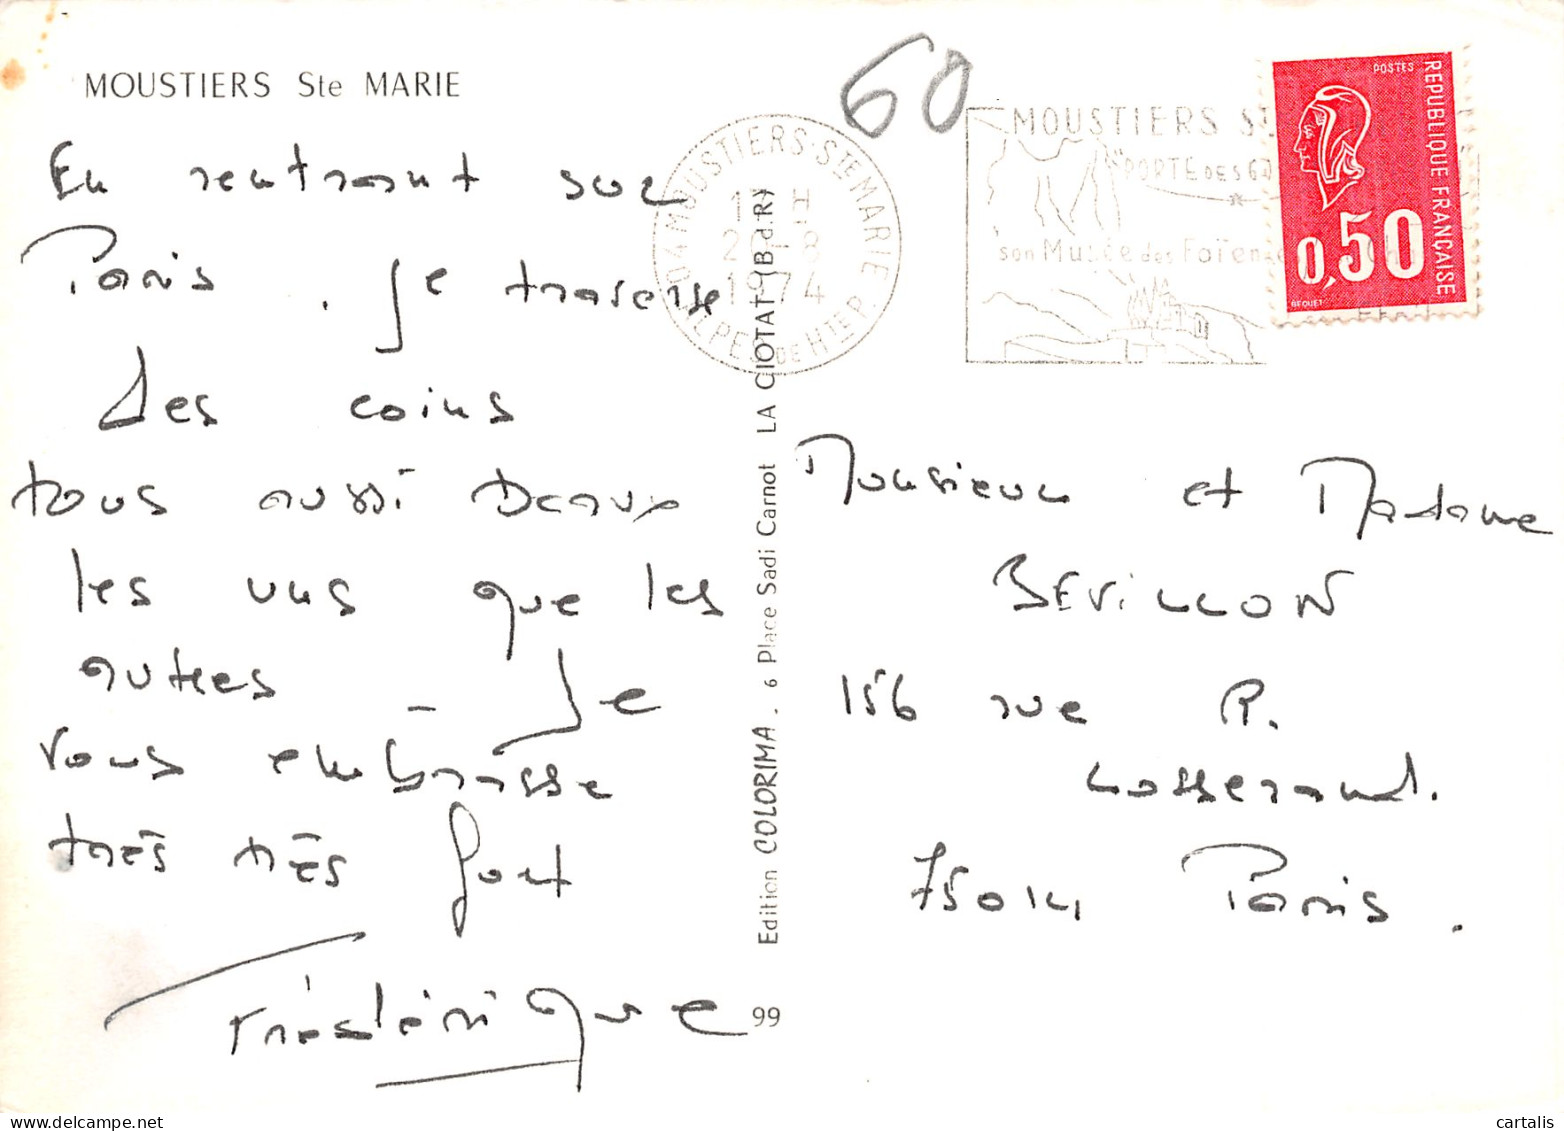 MOUSTIERS Ste MARIE
En rentrant sur
Paris. Je traverse
des coins
tous aussi beaux
les uns que les
autres - Je
vous embrasse
très très fort
Frédérique
60
04 MOUSTIERS-STE MARIE
ALPES DE HTE P.
1974
MOUSTIERS
PORTE DES
son Musée des Faïen
POSTES
REPUBLIQUE FRANÇAISE
0,50
BEQUET
Edition COLORIMA. 6 Place Sadi Carnot LA CIOTAT (B.d.R)
99
Monsieur et Madame
BEVILLON
156 rue R.
Losserand.
75014 Paris.
cartalis